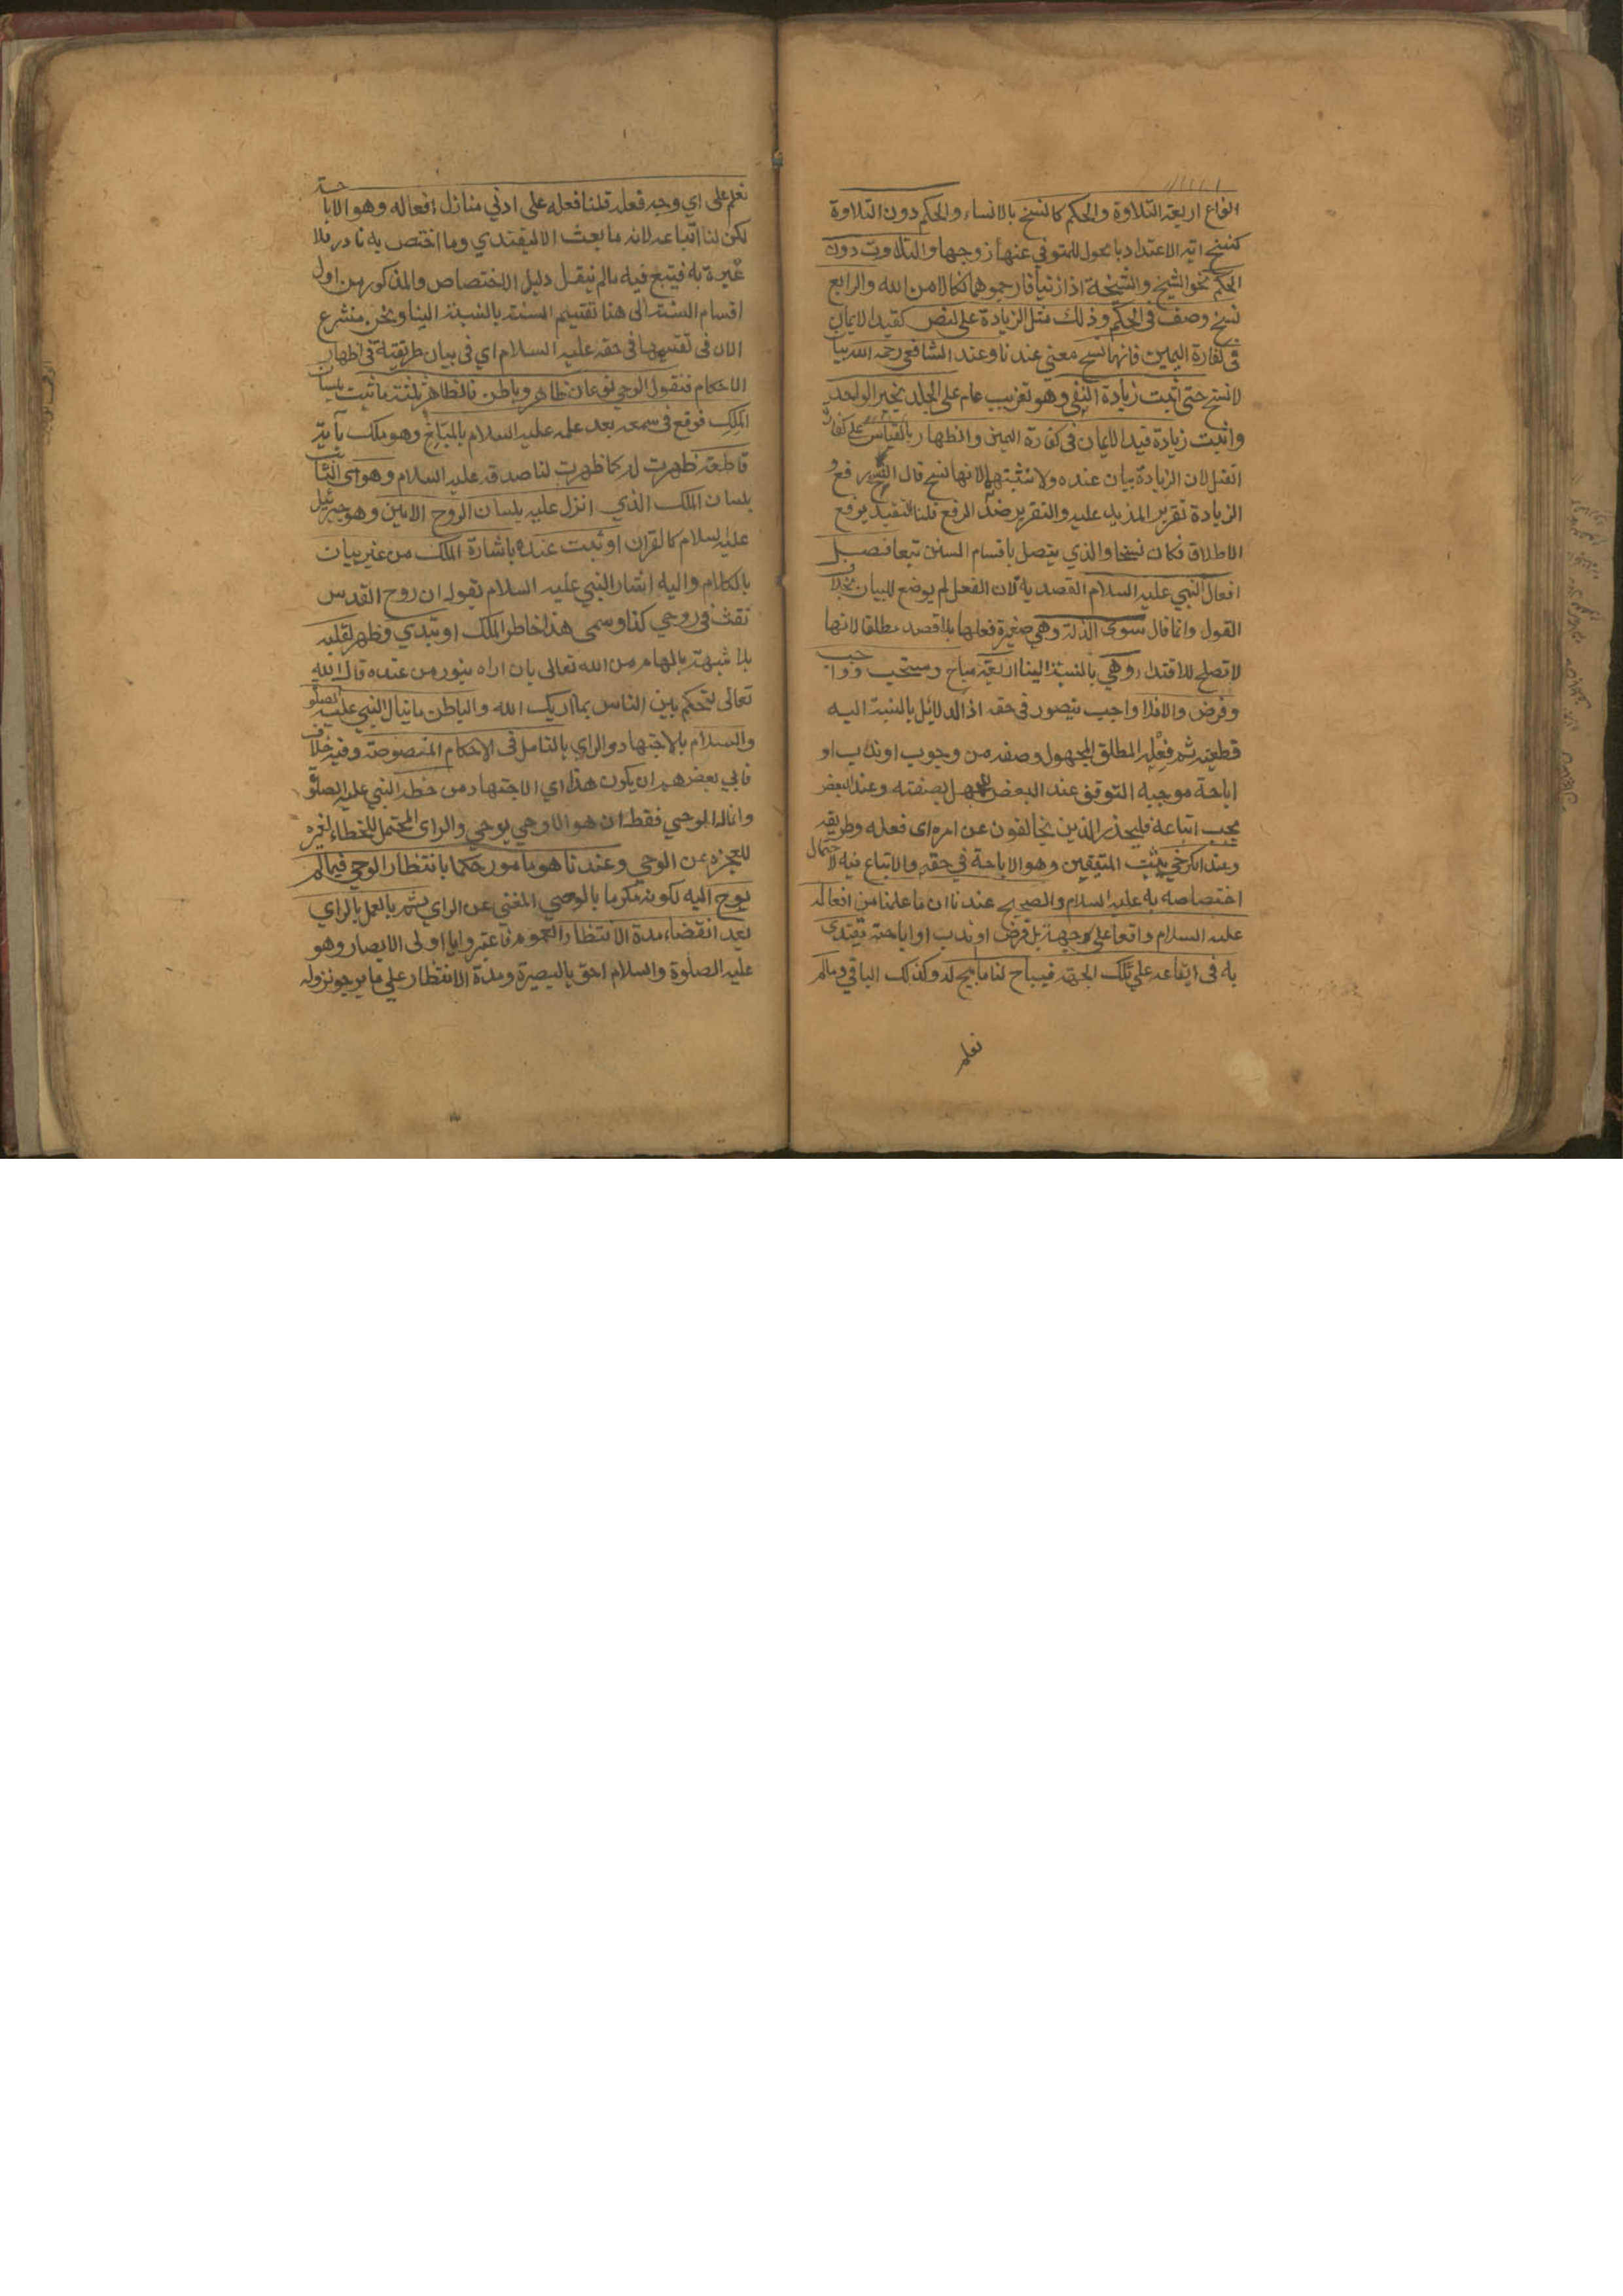 انواع اربعة التلاوة والحكم كالنسخ بالانساء والحكم دون التلاوة
كنسخ اية الاعتداد بالحول للمتوفي عنها زوجها والتلاوت دون
الحكم نحو الشيخ والشيخة اذا زنيا فارجموهما نكالا من الله والرابع
نسخ وصف في الحكم وذلك مثل الزيادة على النص كقيد الايمان
في كفارة اليمين فانها نسخ معنى عندنا وعند الشافعي رحمه الله بيان
لا نسخ حتى اثبت زيادة النفي وهو تغريب عام على الجلد بخبر الواحد
واثبت زيادة قيد الايمان في كفارة اليمين والظهار بالقياس على كفارة
القتل لان الزيادة بيان عنده ولا نثبتها لانها نسخ قال النسخ رفع و
الزيادة تقرير المزيد عليه والتقرير ضد الرفع قلنا التقييد يرفع
الاطلاق فكان نسخا والذي يتصل باقسام السنن تبعا فصل
افعال النبي عليه السلام القصدية لان الفعل لم يوضع للبيان بخلاف
القول وانما قال سوى الزلة وهي صغيرة فعلها بلا قصد مطلقا لانها
لا تصلح للاقتداء وهي بالنسبة الينا اربعة مباح ومستحب وواجب
وفرض والا فلا واجب يتصور في حقه اذ الدلائل بالنسبة اليه
قطعية ثم فعله المطلق المجهول وصفه من وجوب او ندب او
اباحة موجبه التوقف عند البعض للجهل بصفته وعند البعض
يجب اتباعه فليحذر الذين يخالفون عن امره اى فعله وطريقه
وعند الكرخي يثبت المتيقن وهو الاباحة في حقه والاتباع فيه لاحتمال
اختصاصه به عليه السلام والصحيح عندنا ان ما علمنا من افعاله
عليه السلام واقعا على وجهة بل فرض او ندب او اباحة يقتدى
به في ايقاعه على تلك الجهة فيباح لنا ما ابيح له وكذلك الباقي وما لم
نعلم
نعلم على اي وجه فعله قلنا فعله على ادنى منازل افعاله وهو الاباحة
لكن لنا اتباعه لانه ما بعث الا ليقتدي وما اختص به نادر فلا
غيره به فيتبع فيه ما لم ينقل دليل الاختصاص والمذكور من اول
اقسام السنة الى هنا تقسيم السنة بالنسبة الينا ونحن منشرع
الان في تقسيمها في حقه عليه السلام اي في بيان طريقة في اظهار
الاحكام فنقول الوحي نوعان ظاهر وباطن فالظاهر ثلثة ما ثبت بلسان
الملك فوقع في سمعه بعد علمه عليه السلام بالمبلغ وهو ملك باية
قاطعة ظهرت له كما ظهرت لنا صدقه عليه السلام وهو اى الثابت
بلسان الملك الذي انزل عليه بلسان الروح الامين وهو جبرئيل
عليه السلام كالقران او ثبت عنده باشارة الملك من غير بيان
بالكلام واليه اشار النبي عليه السلام بقوله ان روح القدس
نفث في روعي كذا وسمى هذا خاطر الملك او تبدي وظهر لقلبه
بلا شبهة بالهام من الله تعالى بان اراه بنور من عنده قال الله
تعالى لتحكم بين الناس بما اريك الله والباطن ما ينال النبي عليه الصلوة
والسلام بالاجتهاد والراي بالتامل في الاحكام المنصوصة وفيه خلاف
فابي بعضهم ان يكون هذا اي الاجتهاد من خطه النبي عليه الصلوة
وانما له الوحي فقط ان هو الا وحي يوحى والراى المحتمل للخطاء لغيره
للعجزه عن الوحي وعندنا هو مامور حكما بانتظار الوحي فيما لم
يوح اليه لكونه مكرما بالوحي المغني عن الراي ثم بالعمل بالراي
بعد انقضاء مدة الانتظار العموم فاعتبروا يا اولى الابصار وهو
عليه الصلوة والسلام احق بالبصيرة ومدة الانتظار على ما يرجو نزوله